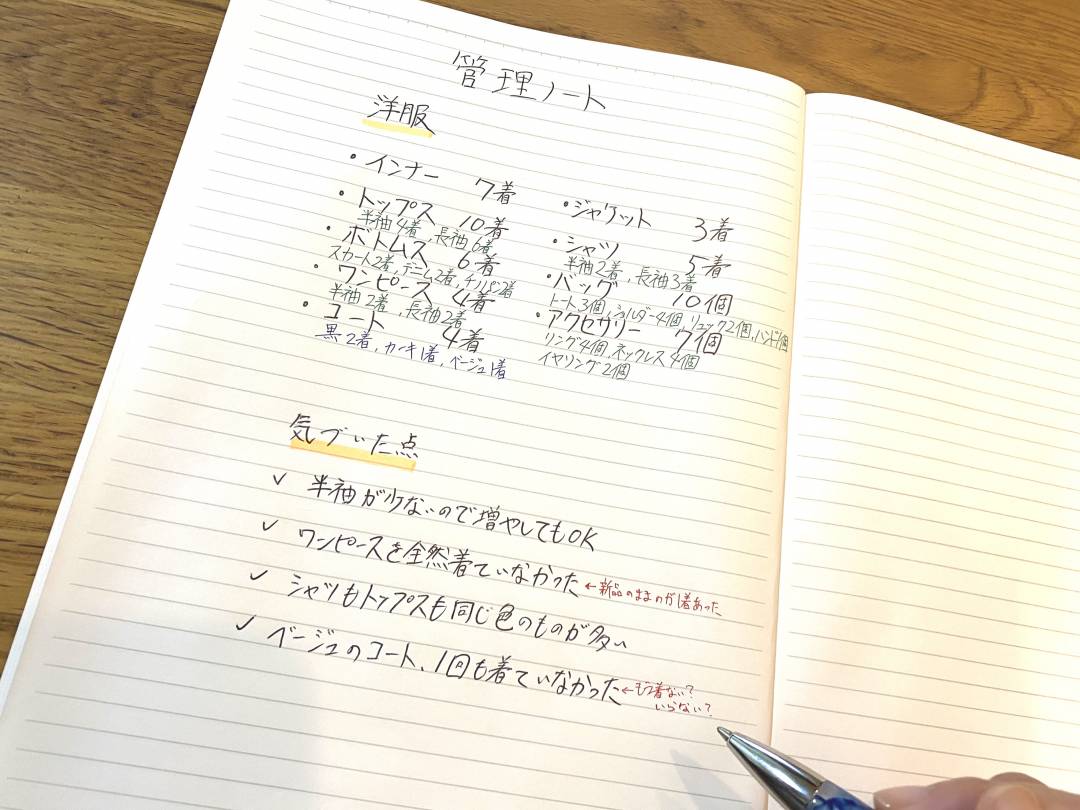 管理ノート
洋服
・インナー 7着
・トップス 10着
半袖4着,長袖6着
・ボトムス 6着
スカート2着,デニム2着,チノパン2着
・ワンピース 4着
半袖2着,長袖2着
・コート 4着
黒2着,カーキ1着,ベージュ1着
・ジャケット 3着
・シャツ 5着
半袖2着,長袖3着
・バッグ 10個
トート3個,ショルダー4個,リュック2個,ハンド1個
・アクセサリー 7個
リング4個,ネックレス4個
イヤリング2個
気づいた点
✓ 半袖が少ないので増やしてもOK
✓ ワンピースを全然着ていなかった ←新品のままのが1着あった
✓ シャツもトップスも同じ色のものが多い
✓ ベージュのコート、1回も着ていなかった ←もう着ない?
いらない?